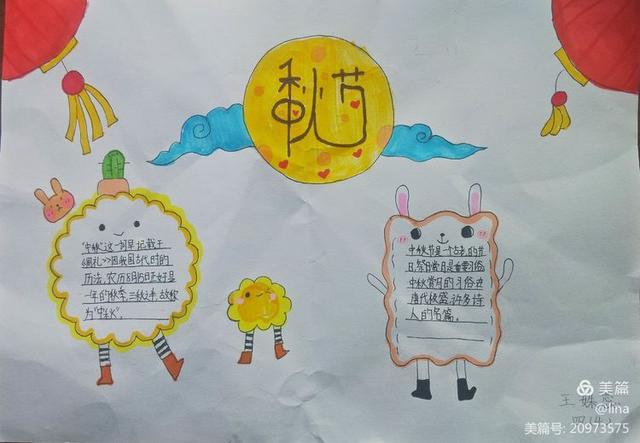 中秋节
"中秋"这一词早记载于
《周礼》,因我国古代时的
历法,农历8月15日正好是
一年的秋季,三秋之中,故称
为"中秋"。
中秋节是一个古老的节
日,祭月赏月是重要习俗
中秋赏月的习俗在
唐代极盛,许多诗
人的名篇。
美篇
@lina
美篇号: 20973575